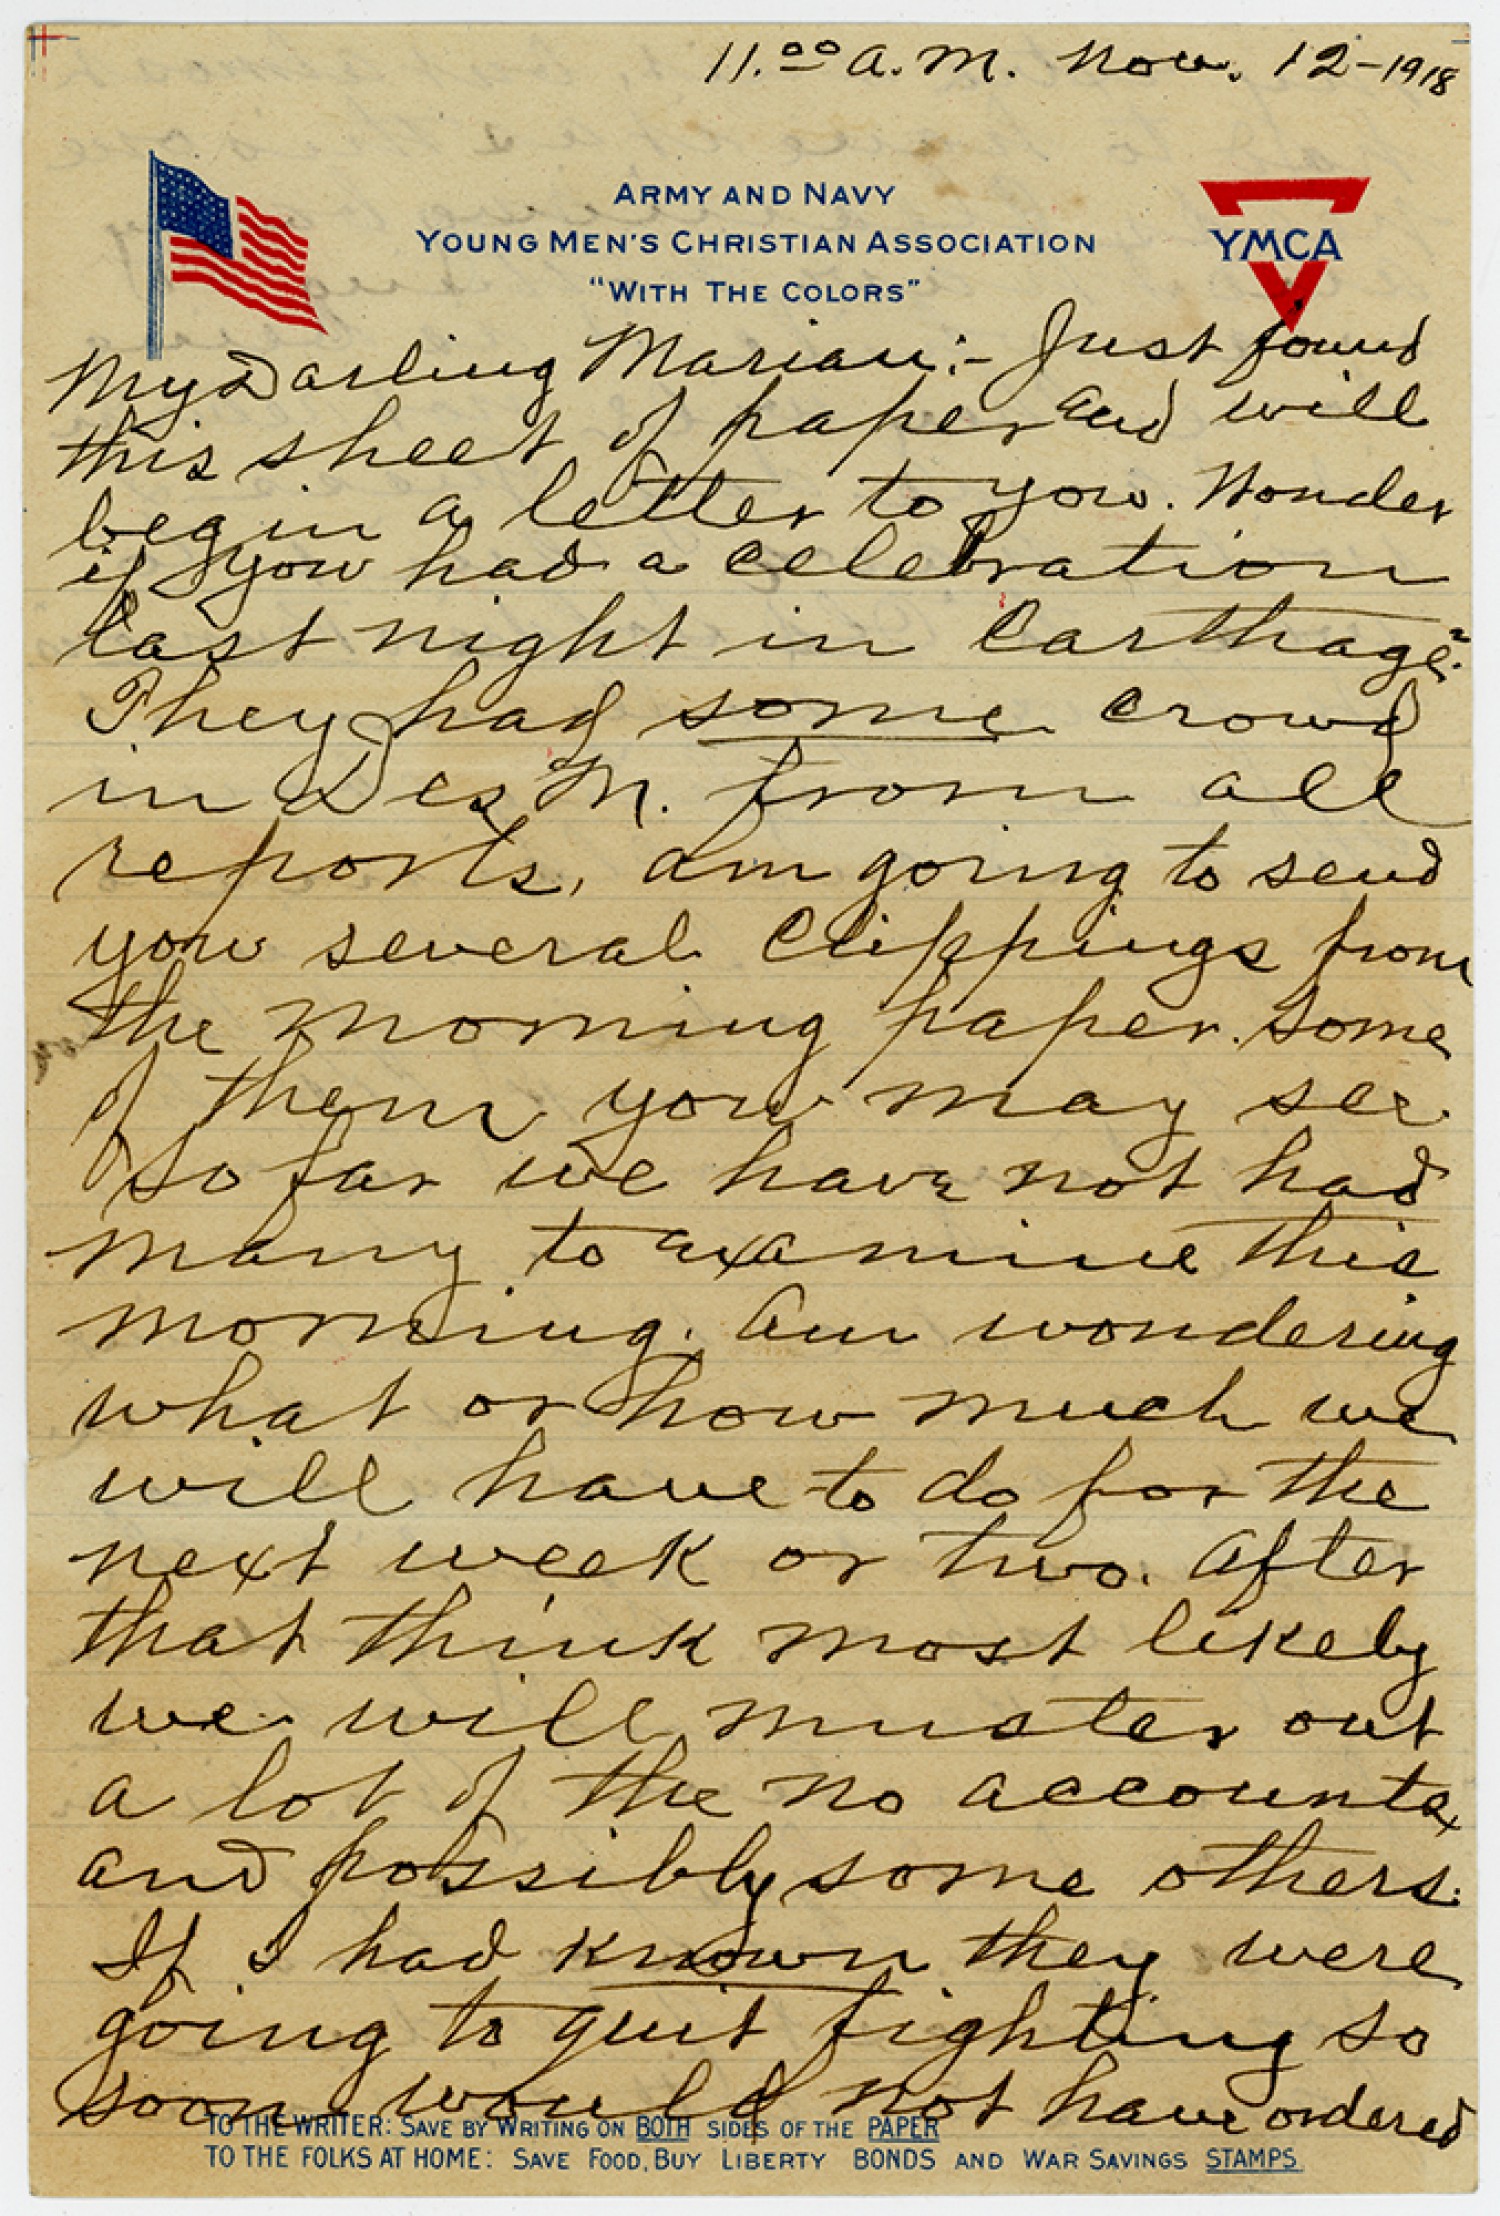 11.00 A.M. Nov. 12-1918
ARMY AND NAVY
YOUNG MEN'S CHRISTIAN ASSOCIATION
"WITH THE COLORS"
YMCA
My Darling Marian:- Just found
this sheet of paper and will
begin a letter to you. Wonder
if you had a celebration
last night in Carthage?
They had some crowd
in Des M. from all
reports. Am going to send
you several clippings from
the morning paper. Some
of them you may see
So far we have not had
many to examine this
morning. Am wondering
what or how much we
will have to do for the
next week or two. After
that think most likely
we will muster out
a lot of the no accounts,
and possibly some others.
If I had known they were
going to quit fighting so
soon would not have ordered
TO THE WRITER: SAVE BY WRITING ON BOTH SIDES OF THE PAPER
TO THE FOLKS AT HOME: SAVE FOOD, BUY LIBERTY BONDS AND WAR SAVINGS STAMPS